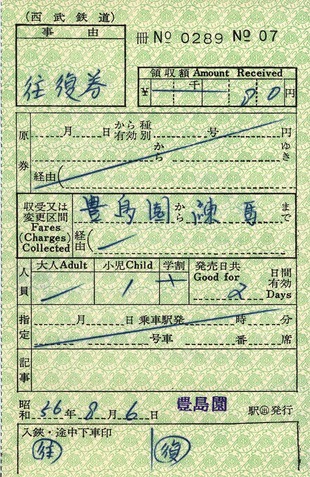 (西武鉄道)
事由
往復券
冊 № 0289 № 07
領収額 Amount Received
千
¥ 80円
原券
月 日 から有効 種別 号 円
から ゆき
経由(
収受又は変更区間 Fares (Charges) Collected
豊島園 から 練馬 まで
経由(
人員
大人Adult 小児Child 学割 発売日共 Good for 2 日間有効 Days
1
指定
月 日 乗車駅発 時 分
号車 番 席
記事
昭和 56年 8月 6日 豊島園 駅 発行
入鋏・途中下車印
往 復